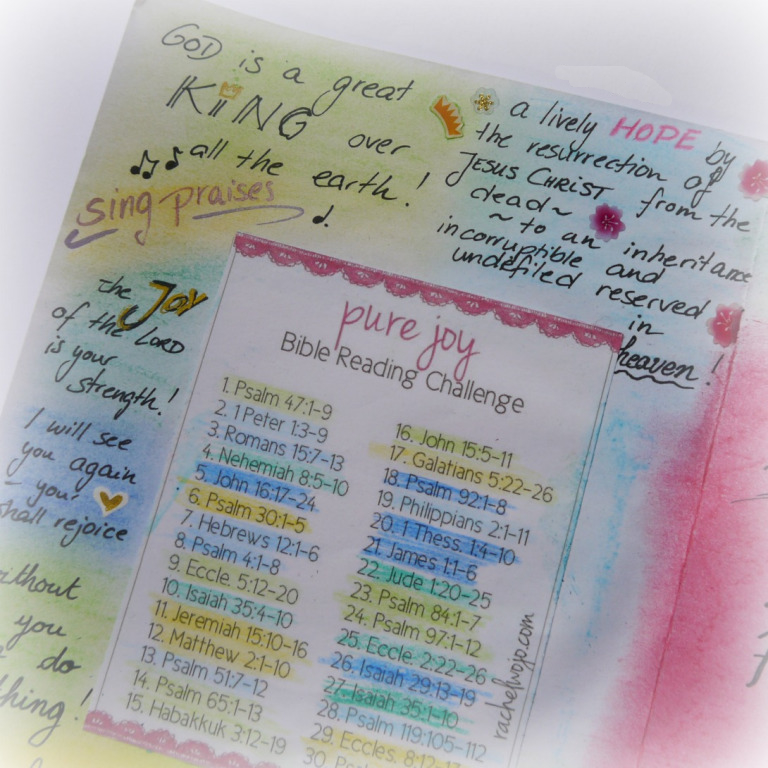 GOD is a great
KiNG over
all the earth!
sing praises
a lively HOPE by
the resurrection of
JESUS CHRIST from the
dead~
~ to an inheritance
incorruptible and
undefiled reserved
in
heaven!
the JOY
of the LORD
is your
strength!
I will see
you again
- your
shall rejoice
without
you
do
thing!
pure joy
Bible Reading Challenge
1. Psalm 47:1-9
2. 1 Peter 1:3-9
3. Romans 15:7-13
4. Nehemiah 8:5-10
5. John 16:17-24
6. Psalm 30:1-5
7. Hebrews 12:1-6
8. Psalm 4:1-8
9. Eccle. 5:12-20
10. Isaiah 35:4-10
11. Jeremiah 15:10-16
12. Matthew 2:1-10
13. Psalm 51:7-12
14. Psalm 65:1-13
15. Habakkuk 3:12-19
16. John 15:5-11
17. Galatians 5:22-26
18. Psalm 92:1-8
19. Philippians 2:1-11
20. 1 Thess. 1:4-10
21. James 1:1-6
22. Jude 1:20-25
23. Psalm 84:1-7
24. Psalm 97:1-12
25. Eccle. 2:22-26
26. Isaiah 29:13-19
27. Isaiah 35:1-10
28. Psalm 119:105-112
29. Eccles. 8:12-17
30.
rachelwojo.com